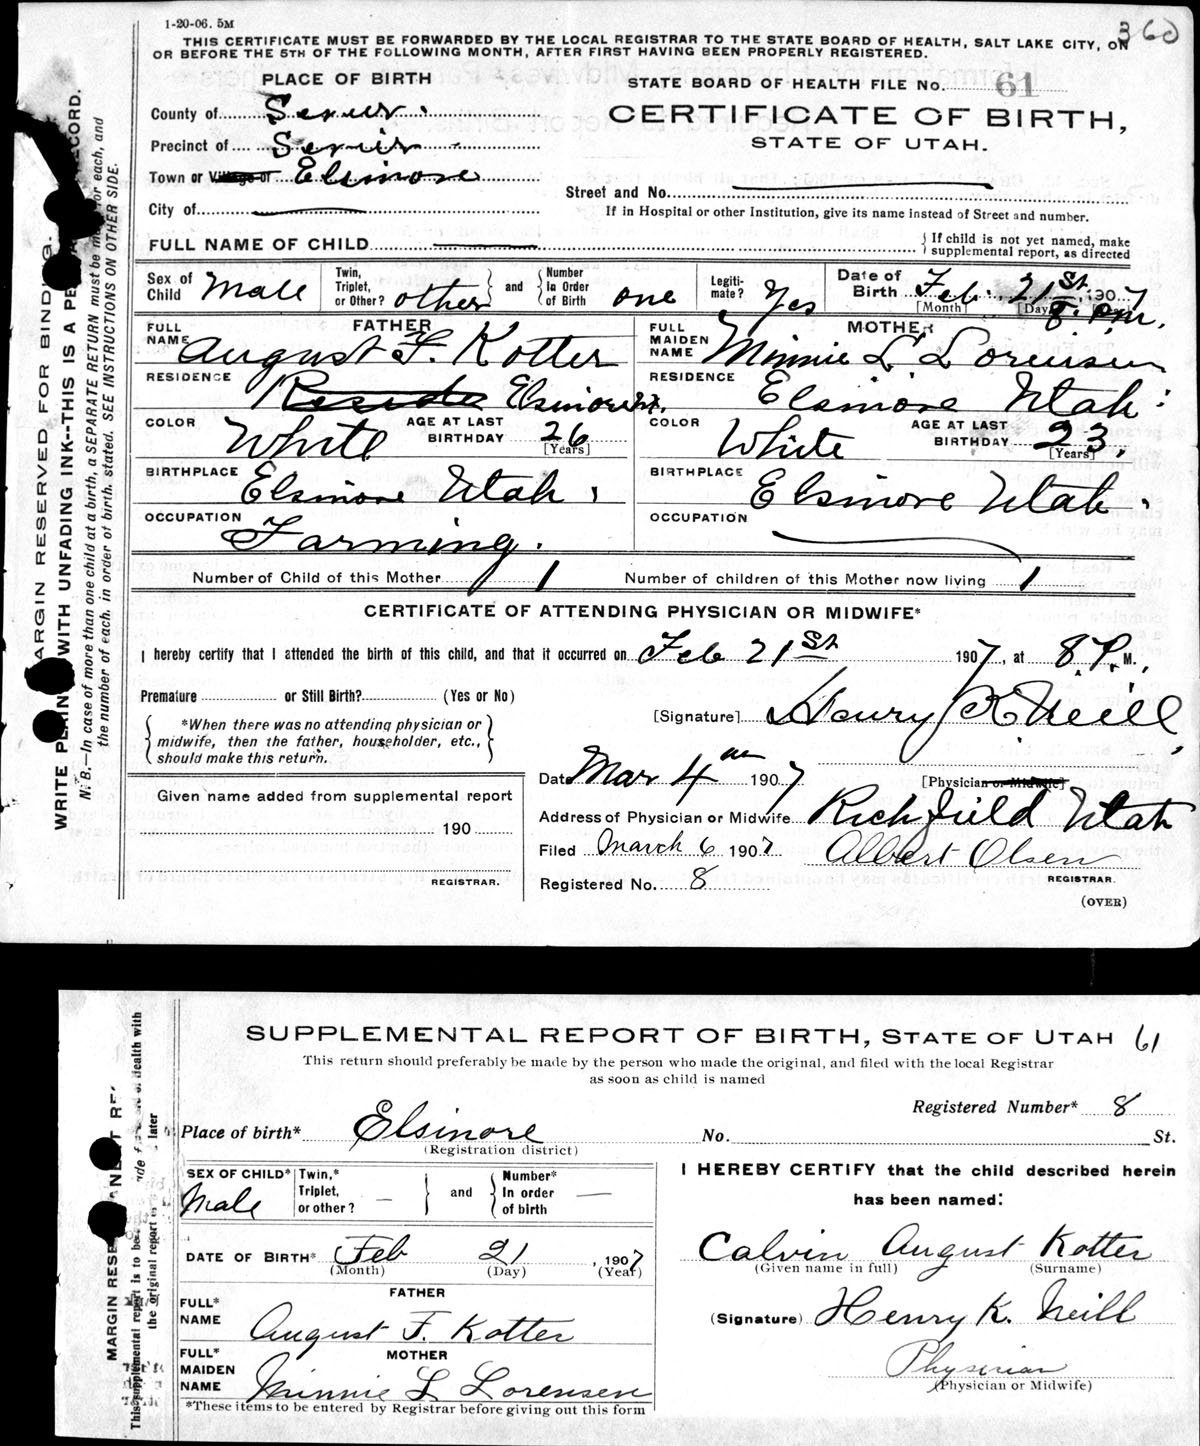 1-20-06. 5M
360
THIS CERTIFICATE MUST BE FORWARDED BY THE LOCAL REGISTRAR TO THE STATE BOARD OF HEALTH, SALT LAKE CITY, ON
OR BEFORE THE 5TH OF THE FOLLOWING MONTH, AFTER FIRST HAVING BEEN PROPERLY REGISTERED.
PLACE OF BIRTH
County of Sevier.
Precinct of Sevier
Town or Village of Elsinore
City of
STATE BOARD OF HEALTH FILE No. 61
CERTIFICATE OF BIRTH,
STATE OF UTAH.
Street and No.
If in Hospital or other Institution, give its name instead of Street and number.
FULL NAME OF CHILD
If child is not yet named, make
supplemental report, as directed
Sex of Child Male
Twin, Triplet, or Other? other
and
Number In Order of Birth one
Legitimate? Yes
Date of Birth Feb. 21st 1907
[Month] [Day]
8. P.M.
FATHER
FULL NAME August F. Kotter
RESIDENCE Reside Elsinore Ut.
COLOR White
AGE AT LAST BIRTHDAY 26
[Years]
BIRTHPLACE Elsinore Utah.
OCCUPATION Farming.
MOTHER
FULL MAIDEN NAME Minnie L. Lorensen
RESIDENCE Elsinore Utah.
COLOR White
AGE AT LAST BIRTHDAY 23.
[Years]
BIRTHPLACE Elsinore Utah.
OCCUPATION
Number of Child of this Mother 1
Number of children of this Mother now living 1
CERTIFICATE OF ATTENDING PHYSICIAN OR MIDWIFE*
I hereby certify that I attended the birth of this child, and that it occurred on Feb 21st 1907, at 8 P. M.,
Premature or Still Birth? (Yes or No)
*When there was no attending physician or
midwife, then the father, householder, etc.,
should make this return.
[Signature] Henry K. Neill,
[Physician or Midwife]
Date Mar 4 1907
Address of Physician or Midwife Richfield Utah
Filed March 6 1907 Albert Olsen
REGISTRAR.
Registered No. 8
(OVER)
Given name added from supplemental report
190
REGISTRAR.
MARGIN RESERVED FOR BINDING.
WRITE PLAINLY WITH UNFADING INK--THIS IS A PERMANENT RECORD.
N. B.—In case of more than one child at a birth, a SEPARATE RETURN must be made for each, and
the number of each, in order of birth, stated. SEE INSTRUCTIONS ON OTHER SIDE.
SUPPLEMENTAL REPORT OF BIRTH, STATE OF UTAH 61
This return should preferably be made by the person who made the original, and filed with the local Registrar
as soon as child is named
Registered Number* 8
Place of birth* Elsinore No. St.
(Registration district)
SEX OF CHILD* Male
Twin,* Triplet, or other? —
and
Number* In order of birth —
DATE OF BIRTH* Feb 21, 1907
(Month) (Day) (Year)
FATHER
FULL* NAME August F. Kotter
MOTHER
FULL* MAIDEN NAME Minnie L Lorensen
*These items to be entered by Registrar before giving out this form
I HEREBY CERTIFY that the child described herein
has been named:
Calvin August Kotter
(Given name in full) (Surname)
(Signature) Henry K. Neill
Physician
(Physician or Midwife)
MARGIN RESE
This supplemental report is to be
the original report is
later